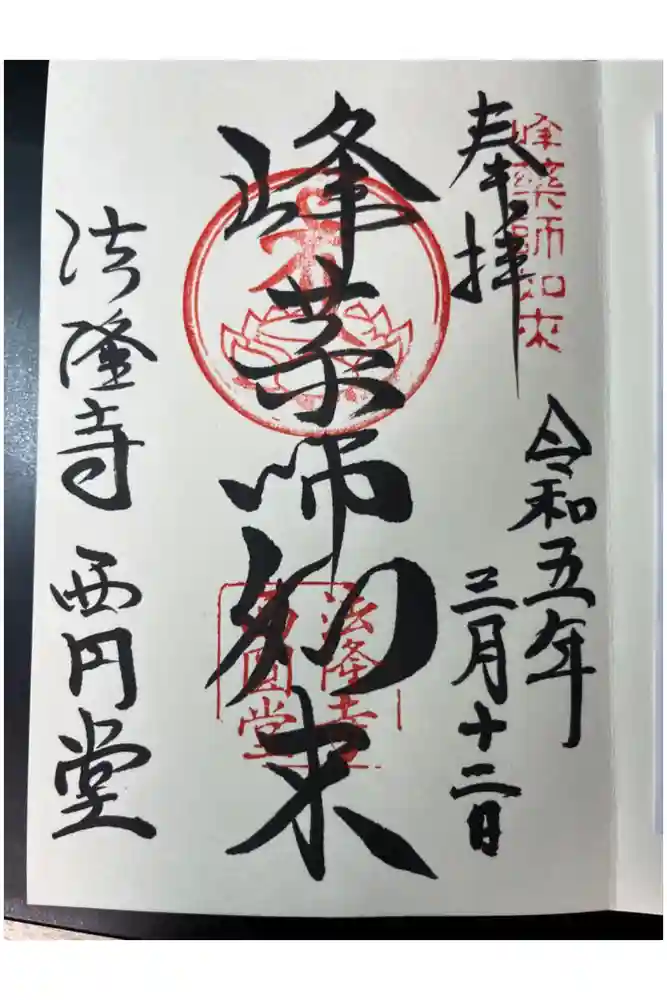 峰薬師如来
奉拝
令和五年
三月十二日
峰薬師如来
法隆寺
西圓堂
法隆寺 西円堂